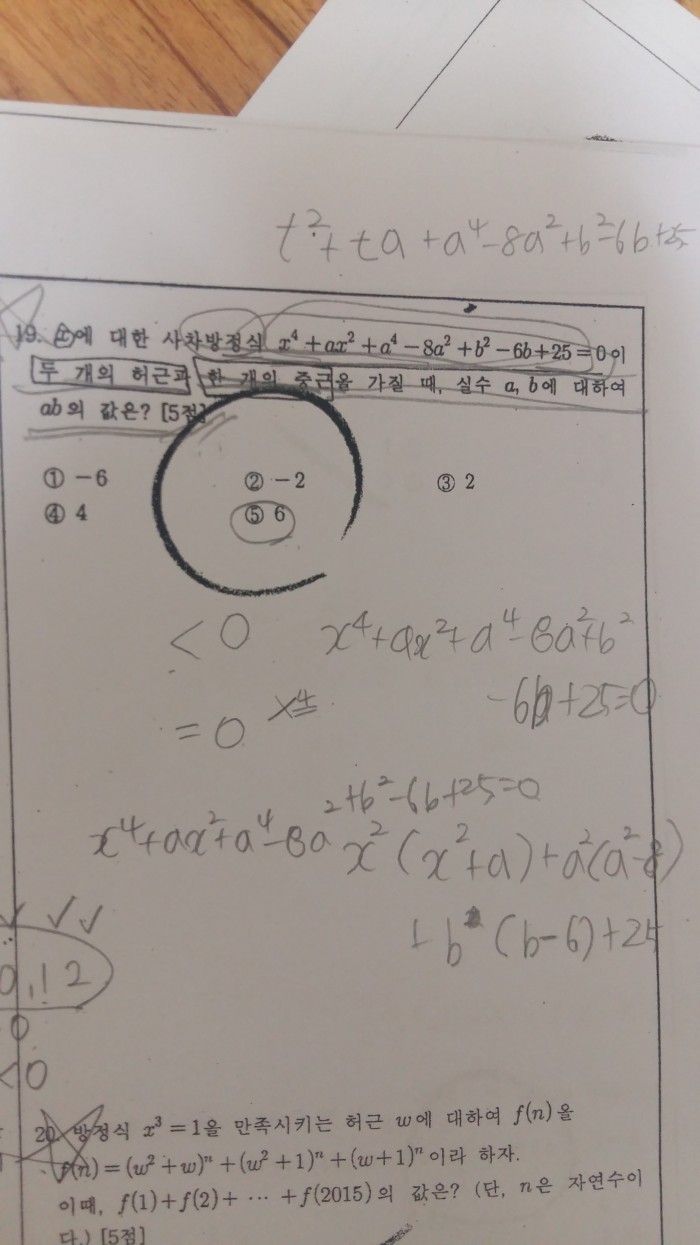 t²+ta+a⁴-8a²+b²-6b+25
19. x에 대한 사차방정식 x⁴+ax²+a⁴-8a²+b²-6b+25=0이
두 개의 허근과 한 개의 중근을 가질 때, 실수 a, b에 대하여
ab의 값은? [5점]
① -6 ② -2 ③ 2
④ 4 ⑤ 6
<0 x⁴+ax²+a⁴-8a²+b²
-6b+25=0
=0 x4
x⁴+ax²+a⁴-8a²+b²-6b+25=0
x²(x²+a)+a²(a²-8)
+b(b-6)+25
0,1 2
0
<0
20. 방정식 x³=1을 만족시키는 허근 w에 대하여 f(n)을
f(n)=(w²+w)ⁿ+(w²+1)ⁿ+(w+1)ⁿ이라 하자.
이때, f(1)+f(2)+ ⋯ +f(2015)의 값은? (단, n은 자연수이
다.) [5점]